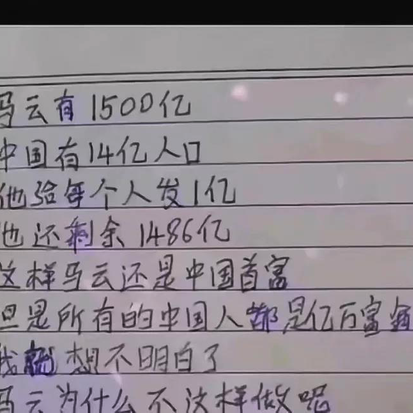 马云有1500亿
中国有14亿人口
他给每个人发1亿
他还剩余1486亿
这样马云还是中国首富
但是所有的中国人都是亿万富翁
我就想不明白了
马云为什么不这样做呢